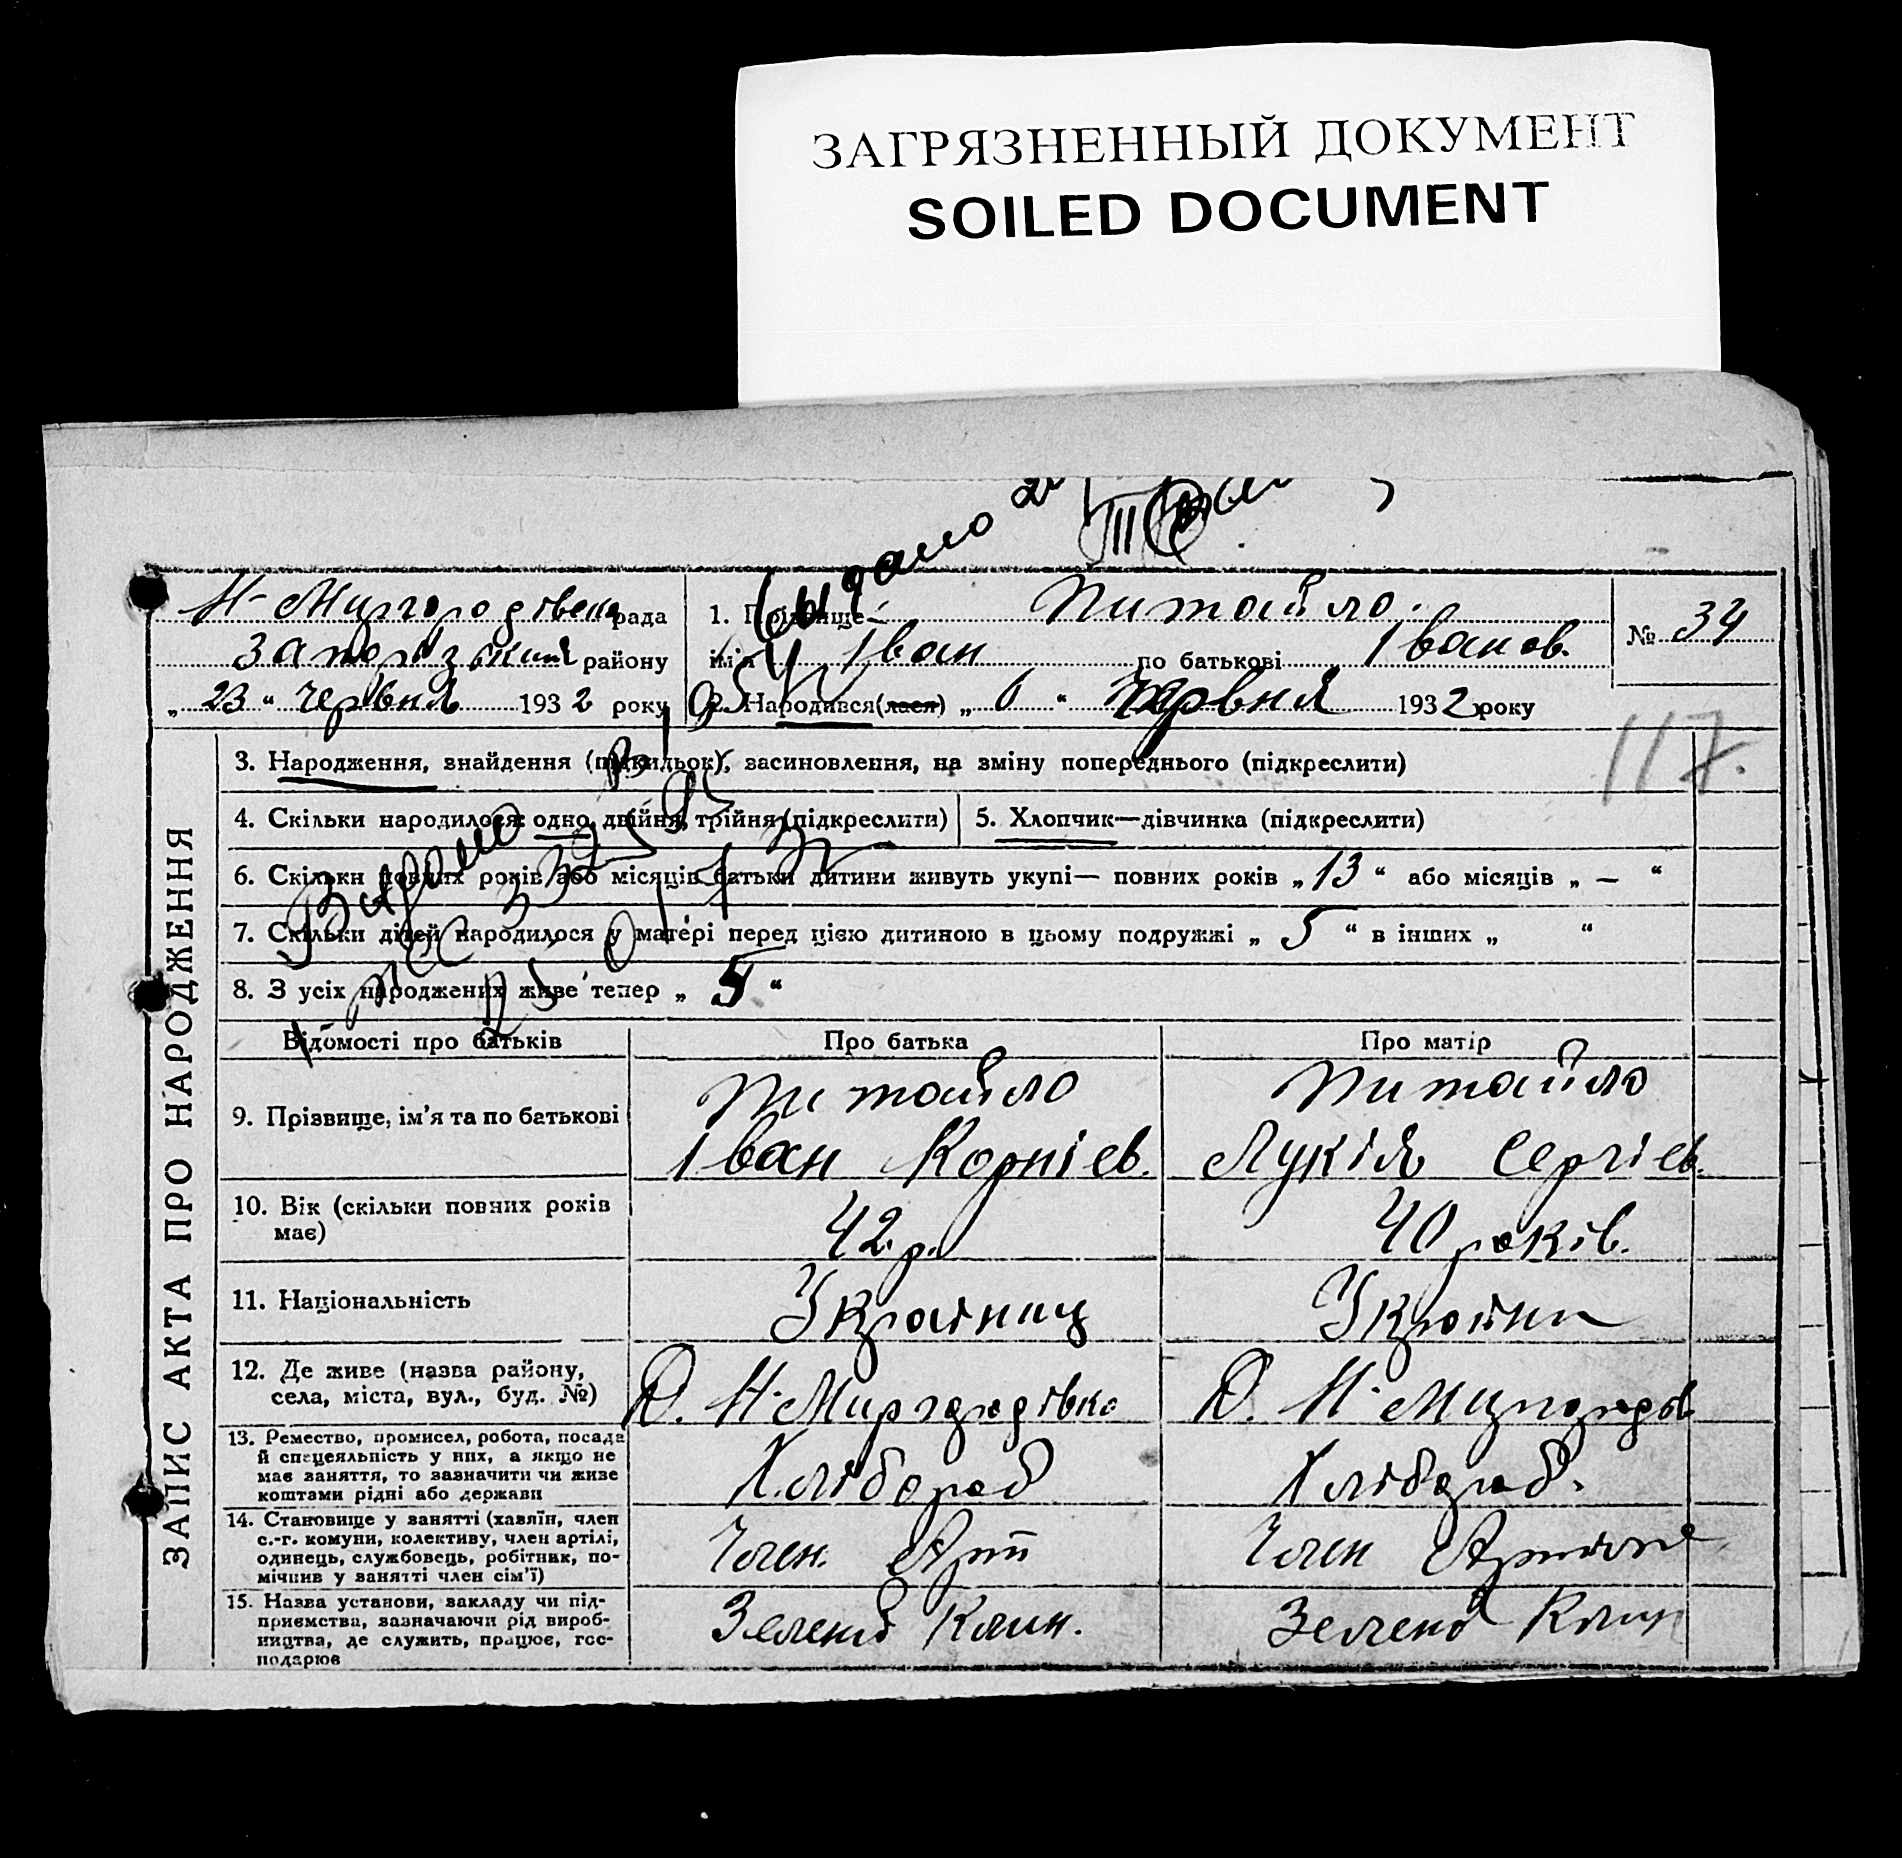 ЗАГРЯЗНЕННЫЙ ДОКУМЕНТ
SOILED DOCUMENT
Видано
Н-Миргородівська рада
Запорізький району
„ 23 “ червня 1932 року
1. Прізвище Питайло
ім'я Іван по батькові Іванов.
2. Народився(лася) „ 6 “ Червня 1932 року
№ 34
117.
ЗАПИС АКТА ПРО НАРОДЖЕННЯ
3. Народження, знайдення (підкидьок), засиновлення, на зміну попереднього (підкреслити)
4. Скільки народилося: одно, двійня, трійня (підкреслити)
5. Хлопчик—дівчинка (підкреслити)
6. Скільки повних років або місяців батьки дитини живуть укупі— повних років „ 13 “ або місяців „ — “
7. Скільки дітей народилося у матері перед цією дитиною в цьому подружжі „ 5 “ в інших „ “
8. З усіх народжених живе тепер „ 5 “
Видано
Відомості про батьків Про батька Про матір
9. Прізвище, ім'я та по батькові
Питайло
Іван Корнієв.
Питайло
Лукія Сергієв.
10. Вік (скільки повних років
має)
42 р.
40 років.
11. Національність
Українц
Українк
12. Де живе (назва району,
села, міста, вул., буд. №)
Н-Миргородівка
Н-Миргородів
13. Ремество, промисел, робота, посада
й спецеяльність у них, а якщо не
має заняття, то зазначити чи живе
коштами рідні або держави
Хлібороб
Хлібороб.
14. Становище у занятті (хазяїн, член
с.-г. комуни, колективу, член артілі,
одинець, службовець, робітник, по-
мічнив у занятті член сім'ї)
Член. Арт
Член Артілі
15. Назва установи, закладу чи під-
приємства, зазначаючи рід вироб-
ництва, де служить, працює, гос-
подарює
Зелений Клин.
Зелений Клин